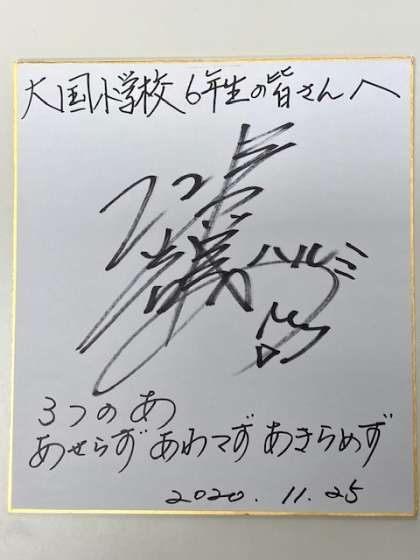 大国小学校 6年生の皆さんへ
ハルミ
3つのあ
あせらず あわてず あきらめず
2020.11.25